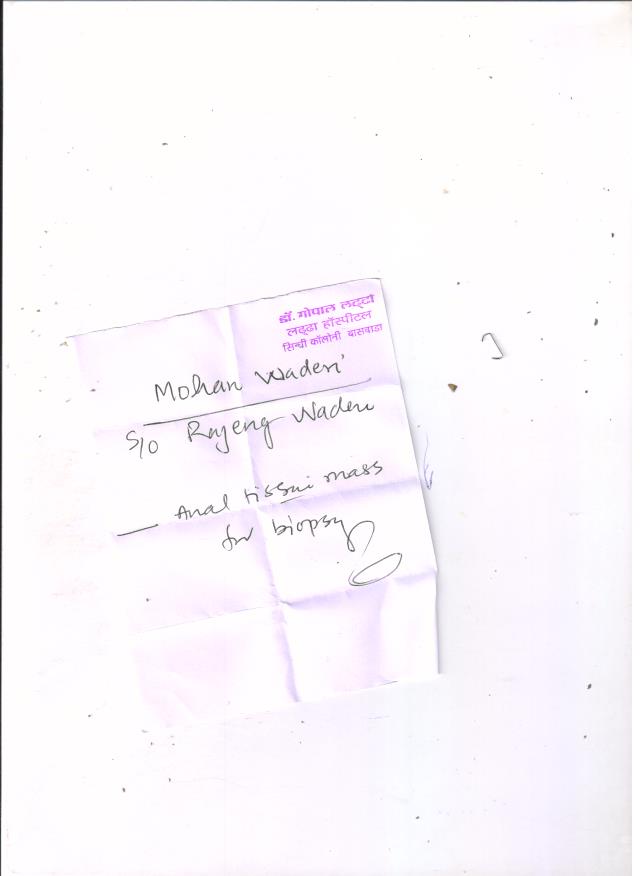 डॉ. गोपाल लड्ढा
लड्ढा हॉस्पीटल
सिन्धी कॉलोनी बासवाडा
Mohan Waderi
S/O Rajeng Waderi
— Anal tissui mass
for biopsy